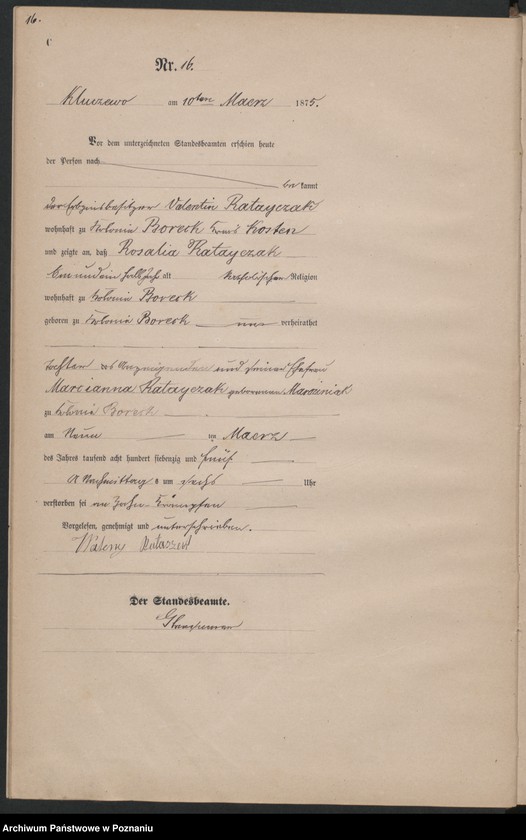 16.
C
Nr. 16.
Kluczewo am 10ten Maerz 1875.
Vor dem unterzeichneten Standesbeamten erschien heute
der Person nach
bekannt
der Eigenthsbesitzer Valentin Ratayczak
wohnhaft zu Kolonie Boreck Kreis Kosten
und zeigte an, daß Rosalia Ratayczak
Ein und ein halb Jahr alt katholischer Religion
wohnhaft zu Kolonie Boreck
geboren zu Kolonie Boreck verheirathet
Tochter des Anzeigenden und seiner Ehefrau
Marcianna Ratayczak geborenen Marciniak
zu Kolonie Boreck
am Neun im Maerz
des Jahres tausend acht hundert siebenzig und fünf
Nachmittags um sechs Uhr
verstorben sei an Zahn-Krämpfen
Vorgelesen, genehmigt und unterschrieben.
Der Standesbeamte.
Archiwum Państwowe w Poznaniu